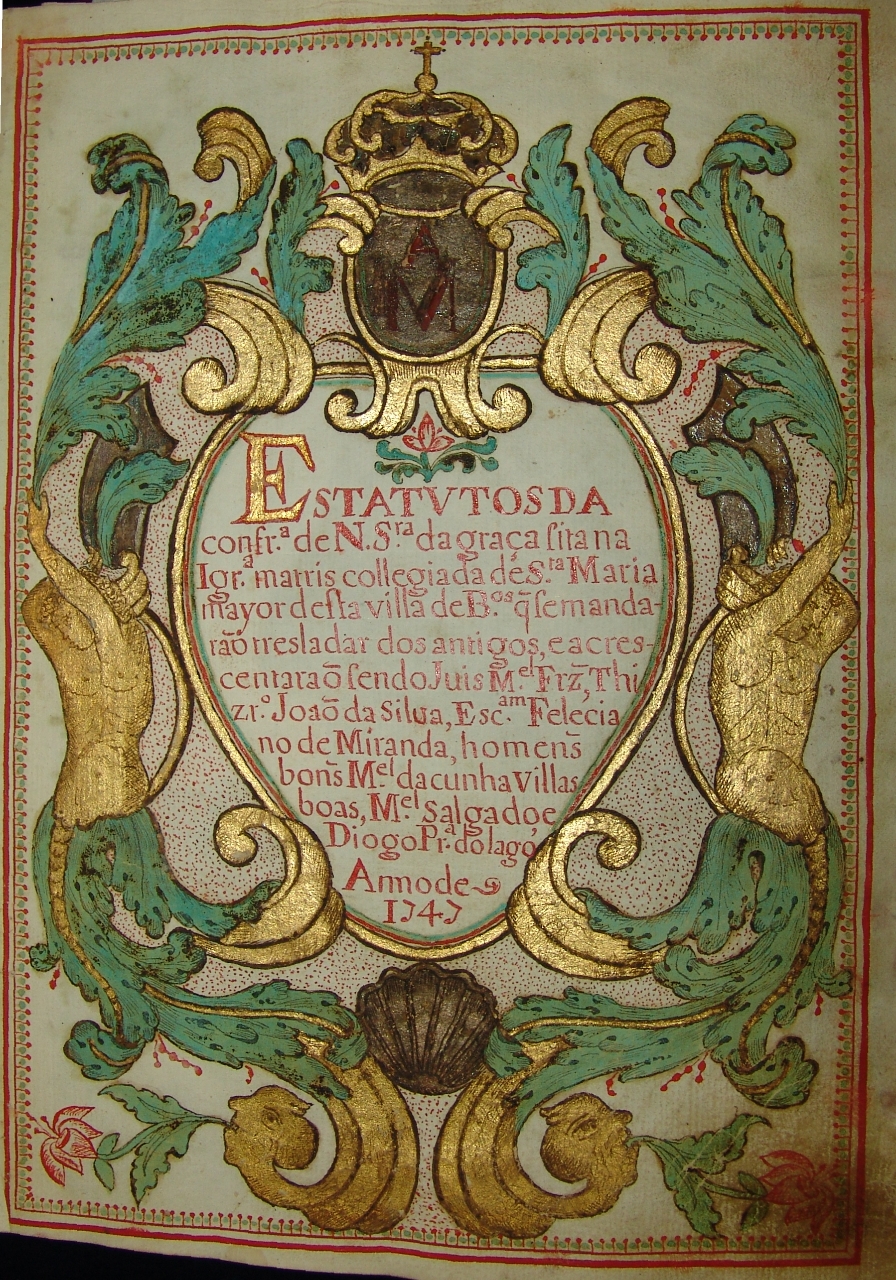 AM
ESTATVTOS DA
confr.ª de N. Sʳᵃ da graça sita na
Igr.ª matris collegiada de Sᵗᵃ Maria
mayor desta villa de B.ᵒˢ q̃ se manda-
raõ tresladar dos antigos, e acres-
centaraõ sendo Juis M.ᵉˡ Frz̃, Thi
zr.º Joaõ da Silua, Esc.ᵃᵐ Felecia
no de Miranda, homens
bons Mᵉˡ da cunha Villas
boas, M.ᵉˡ Salgado e
Diogo Pr.ª do lago
Anno de
1747